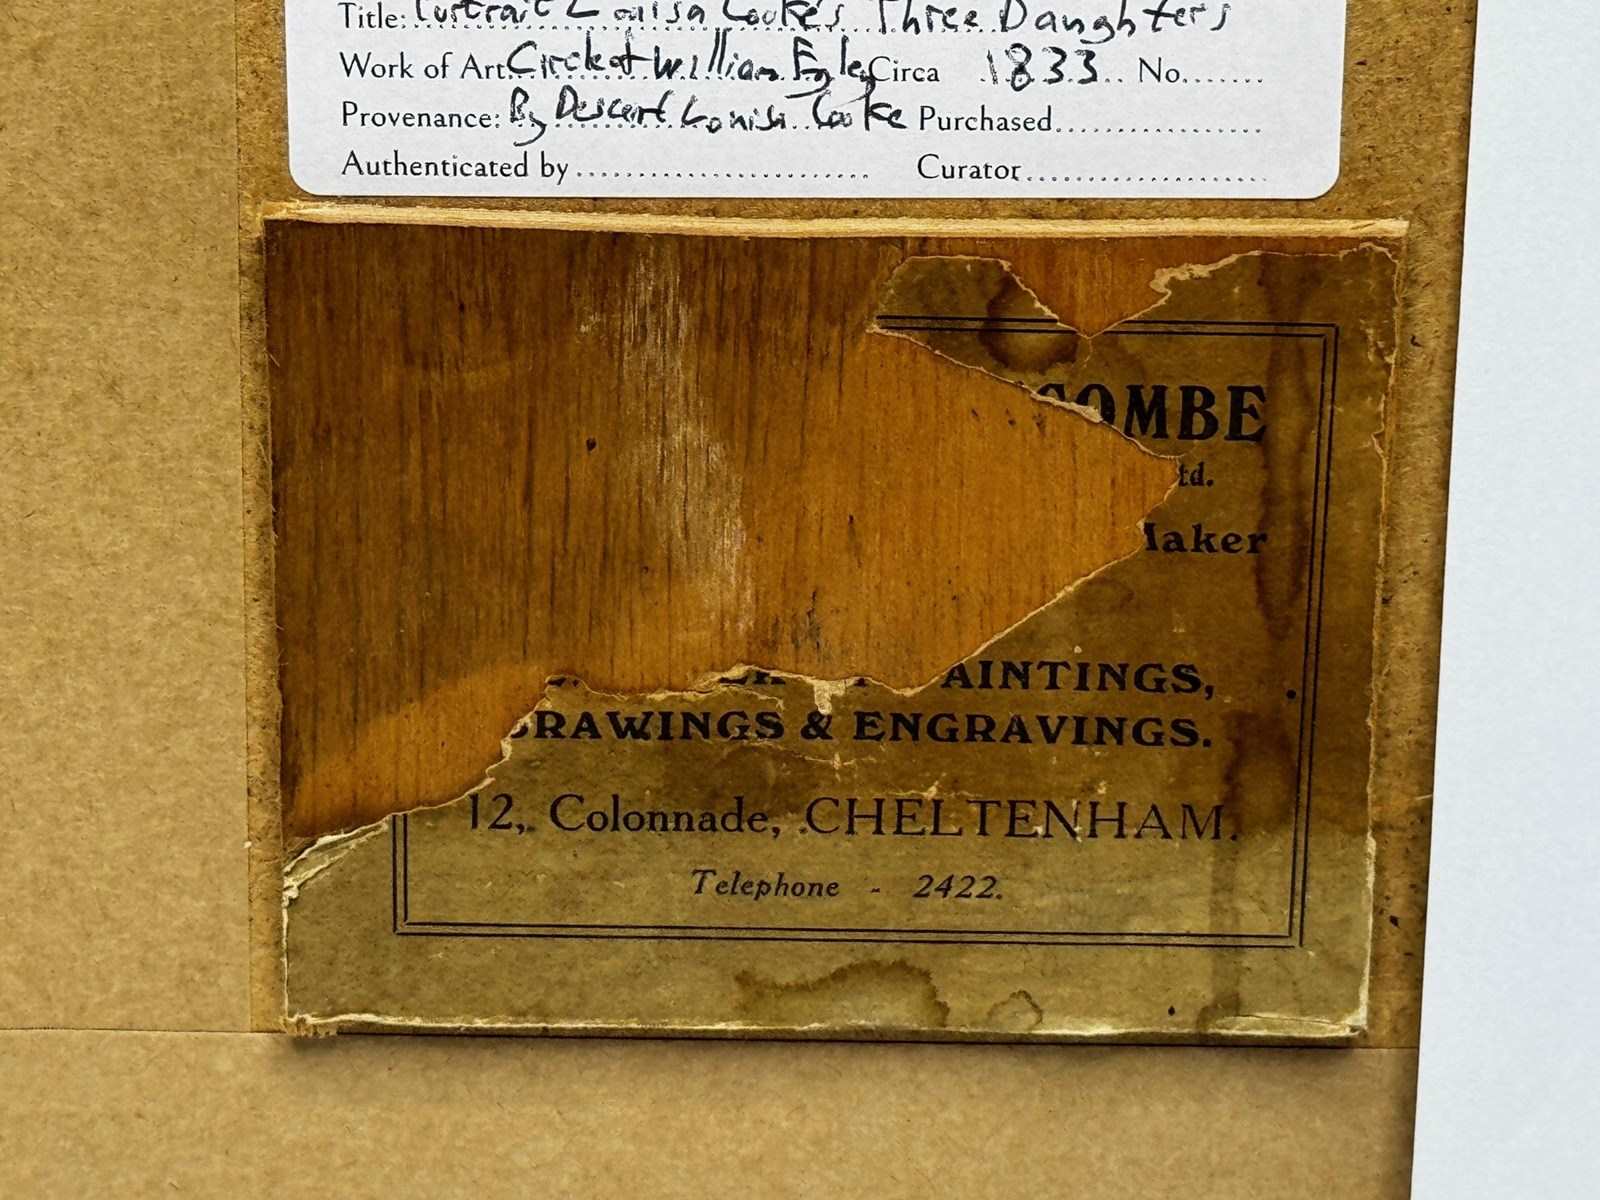 Title: Portrait Louisa Cooke's Three Daughters
Work of Art: Circle of William Egley Circa 1833 No.
Provenance: By Descent Louisa Cooke Purchased
Authenticated by Curator
COMBE
td.
Maker
AINTINGS,
RAWINGS & ENGRAVINGS.
12, Colonnade, CHELTENHAM.
Telephone - 2422.